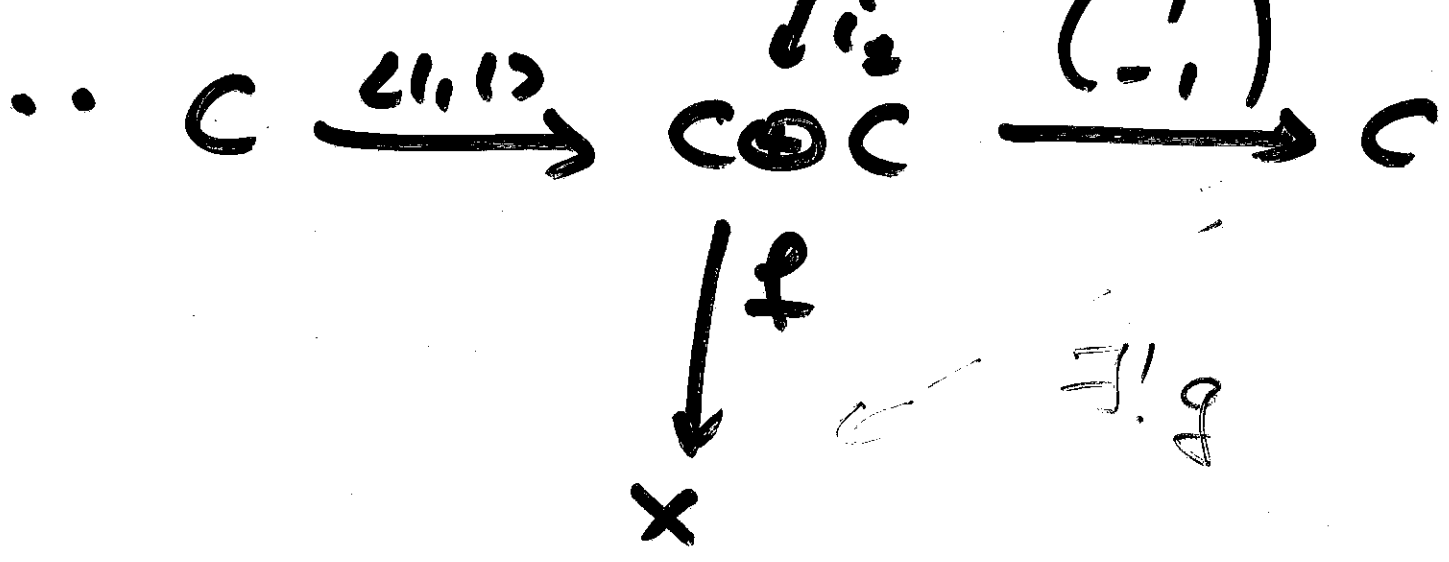 i₂
.. C ⟨1,1⟩ → C⊕C (1 -1) → C
↓ f
∃! g
X